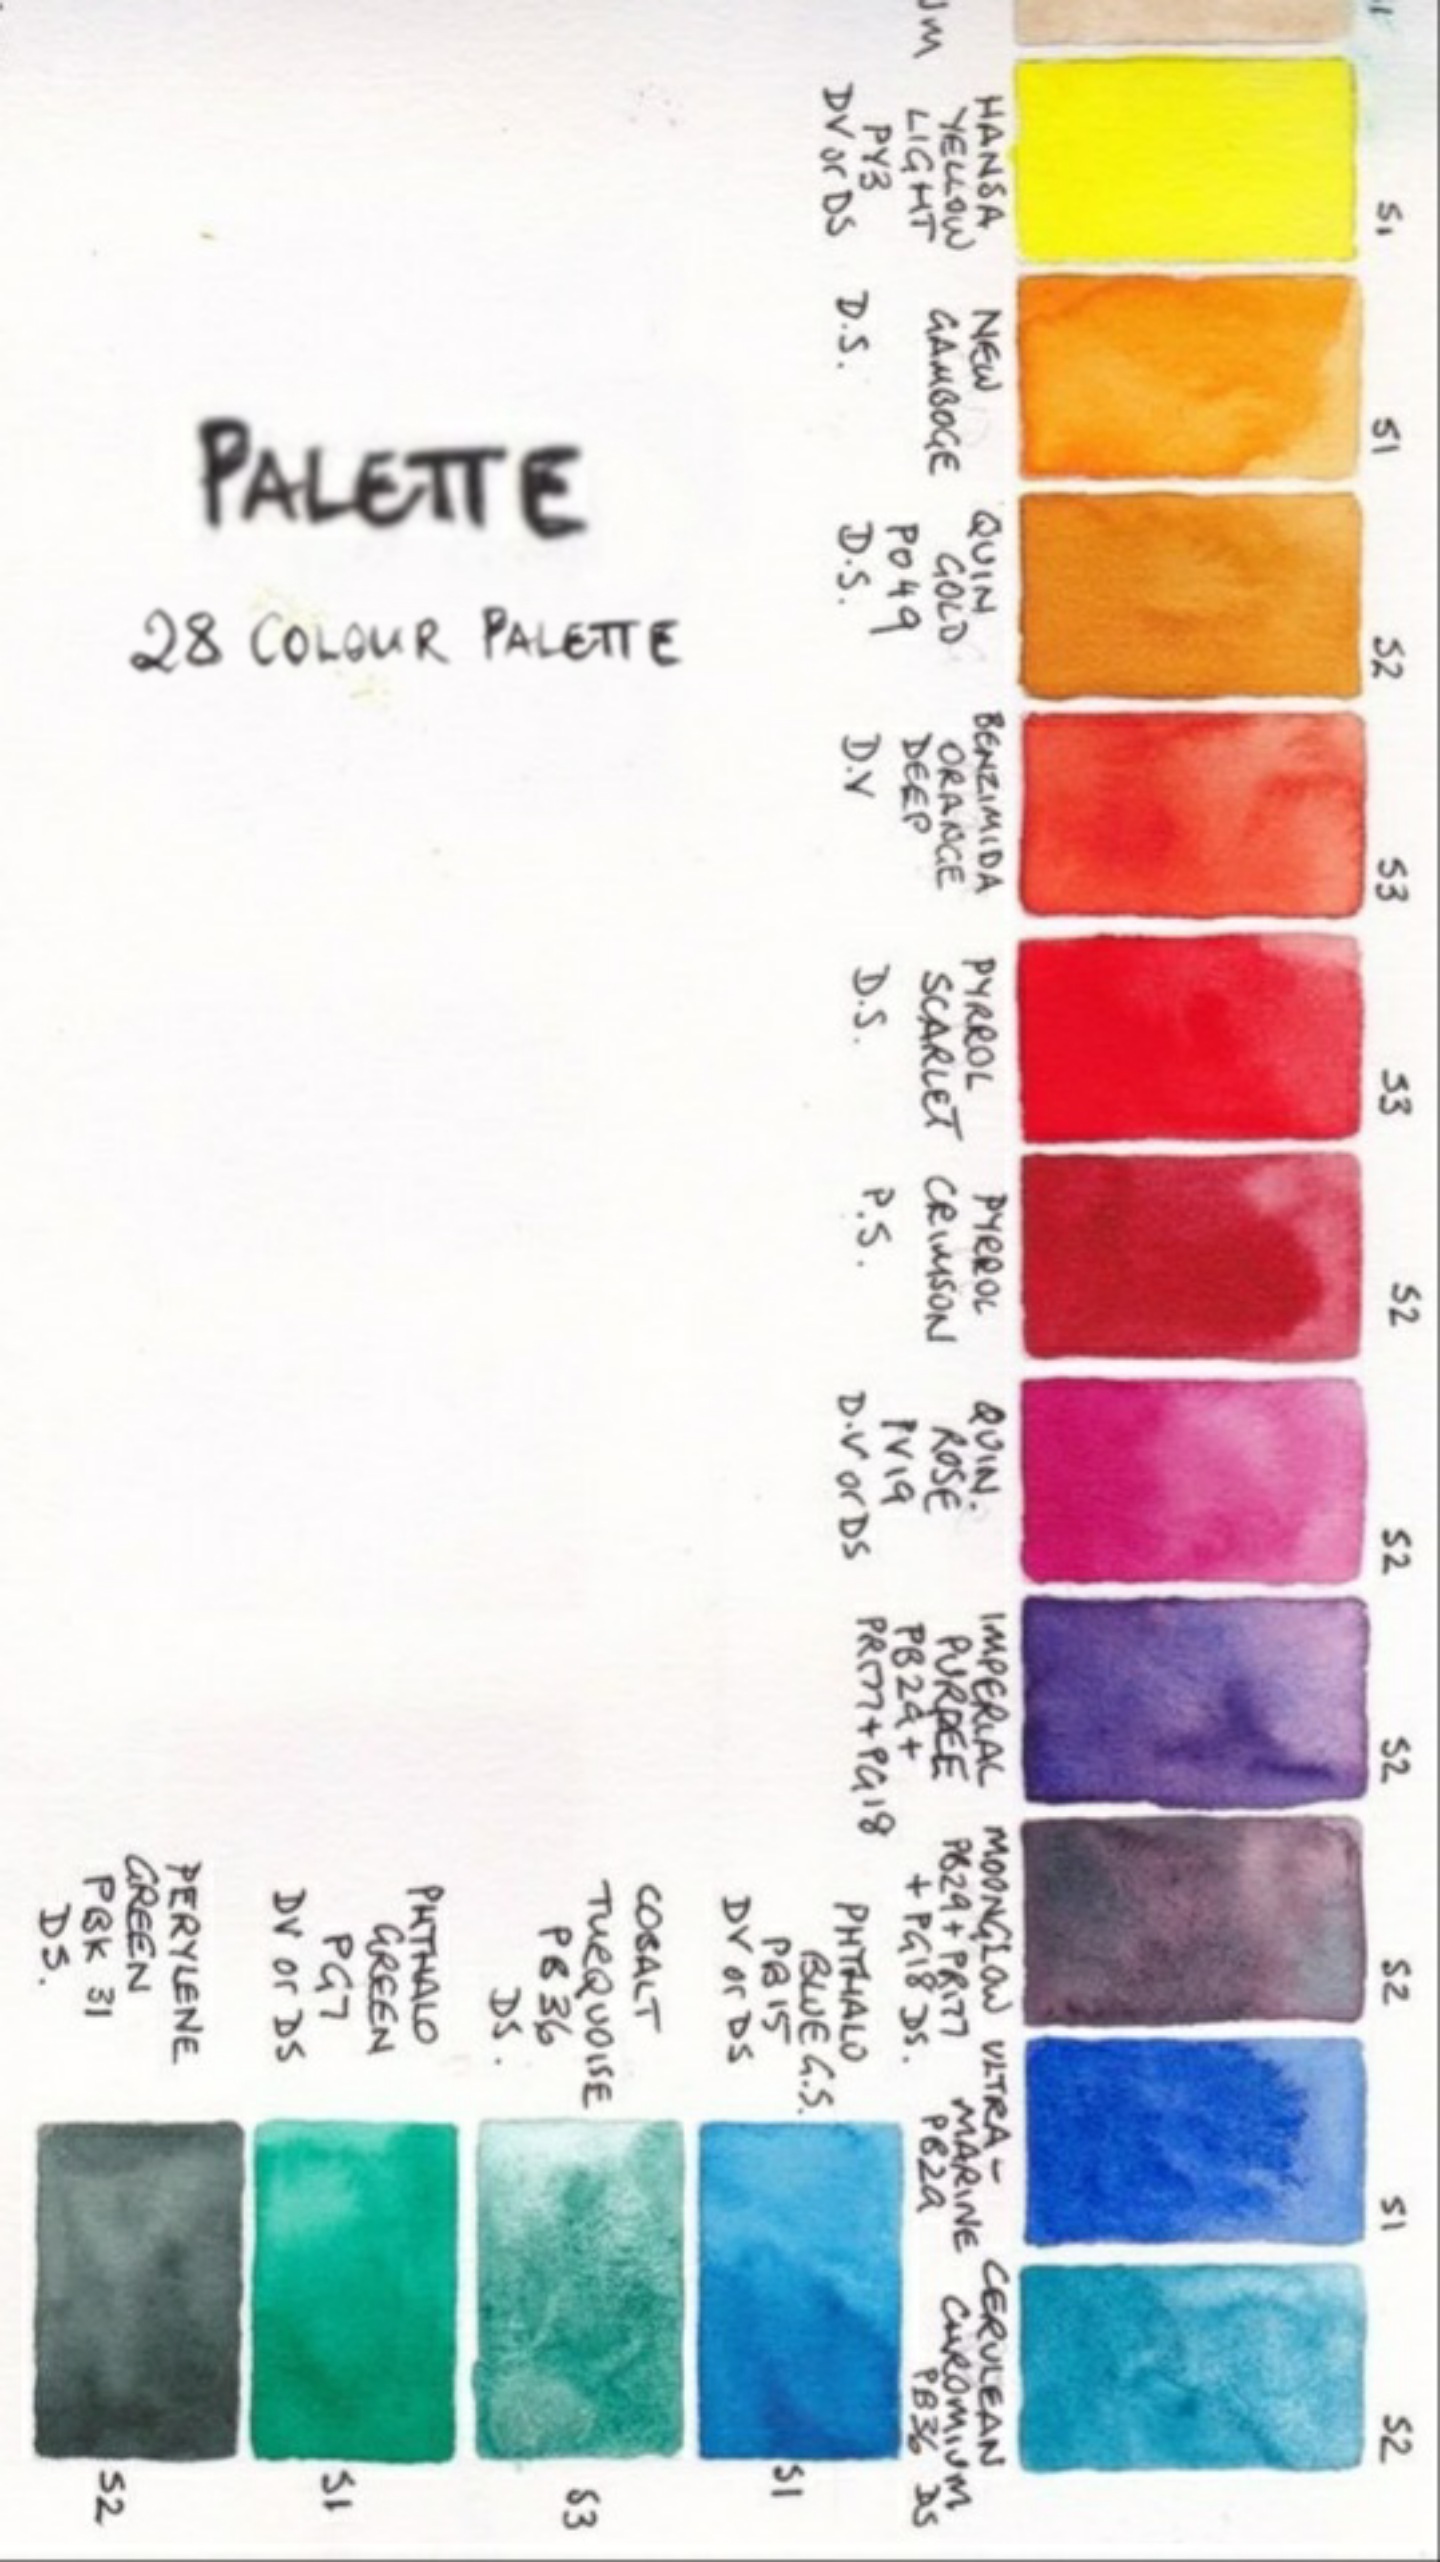 PALETTE
28 COLOUR PALETTE
UM
HANSA
YELLOW
LIGHT
PY3
DV or DS
S1
NEW
GAMBOGE
D.S.
S1
QUIN
GOLD
PO49
D.S.
S2
BENZIMIDA
ORANGE
DEEP
D.V
S3
PYRROL
SCARLET
D.S.
S3
PYRROL
CRIMSON
P.S.
S2
QUIN.
ROSE
PV19
D.V or DS
S2
IMPERIAL
PURPLE
PB29+
PR177+PG18
S2
MOONGLOW
PB29+PR177
+PG18 DS.
S2
ULTRA-
MARINE
PB29
S1
CERULEAN
CHROMIUM
PB36 DS
S2
PHTHALO
BLUE G.S.
PB15
DV or DS
S1
COBALT
TURQUOISE
PB36
DS.
S3
PHTHALO
GREEN
PG7
DV or DS
S1
PERYLENE
GREEN
PBK 31
DS.
S2